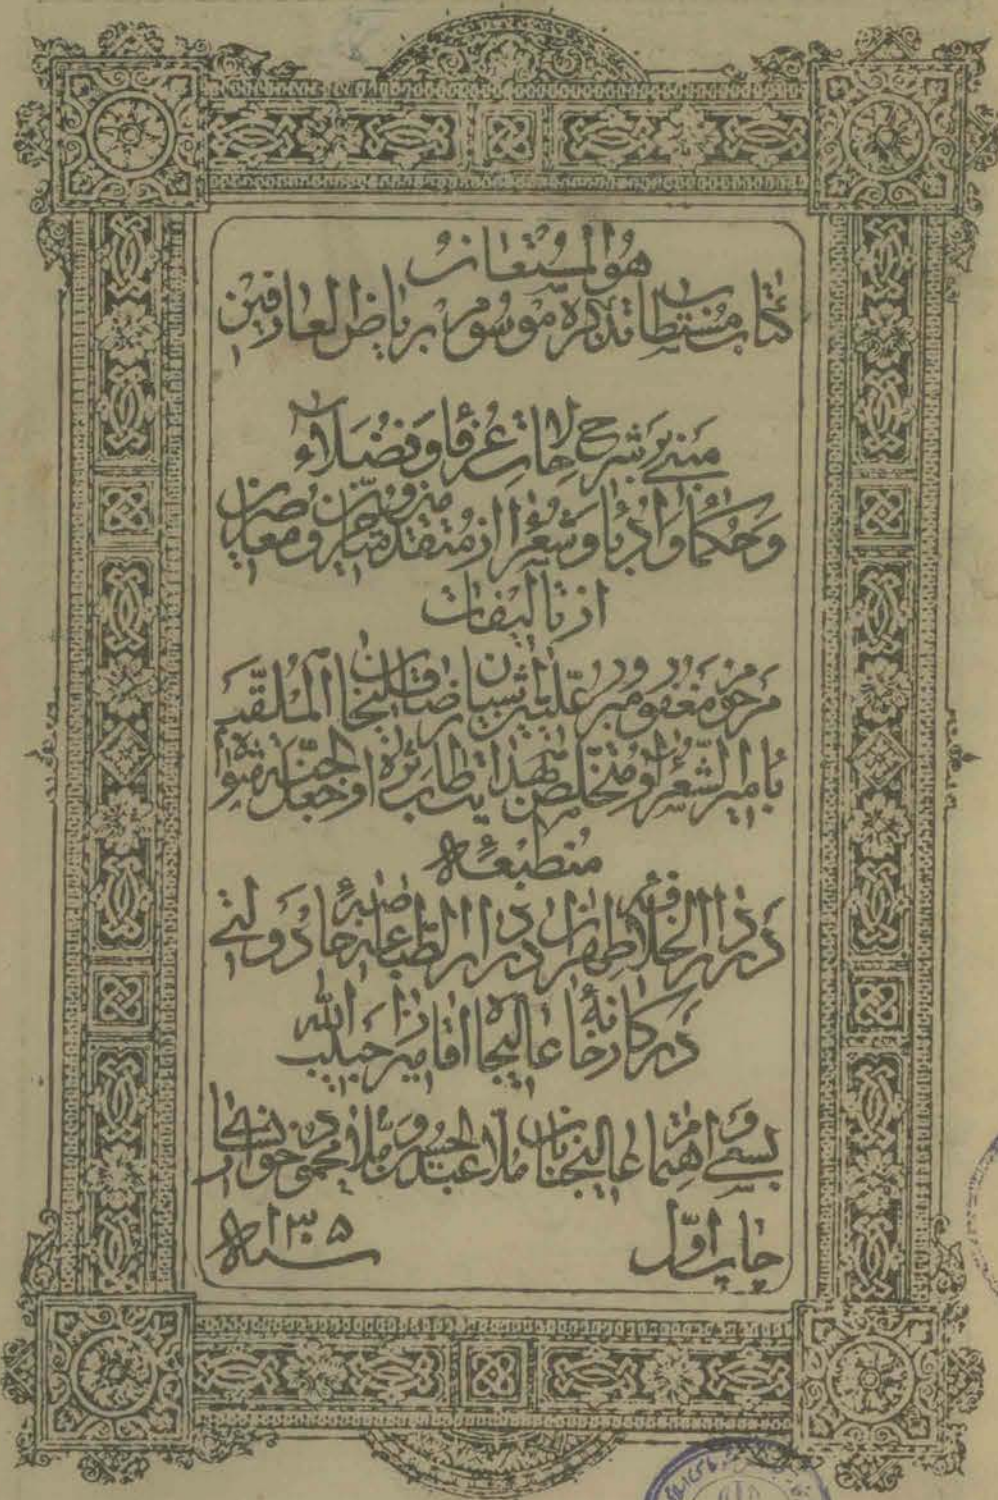 هو المستعان
کتاب مستطاب تذکره موسوم بریاض العارفین
مبنی بر شرح حالات عرفا و فضلاء
و حکما و ادبا و شعرا از متقدمین و متاخرین و معاصرین
از تالیفات
مرحوم مغفور مبرور رضاقلیخان الملقب
بامیر الشعراء و متخلص بهدایت طاب ثراه و جعل الجنة مثواه
منطبعه
در دار الخلافه طهران در دار الطباعه خاصه دولتی
در کارخانه عالیجاه اقا میرزا حبیب الله
بسعی و اهتمام عالیجنابان ملا عبدالحسین و ملا محمود خوانساری
چاپ اول سنه ۱۳۰۵